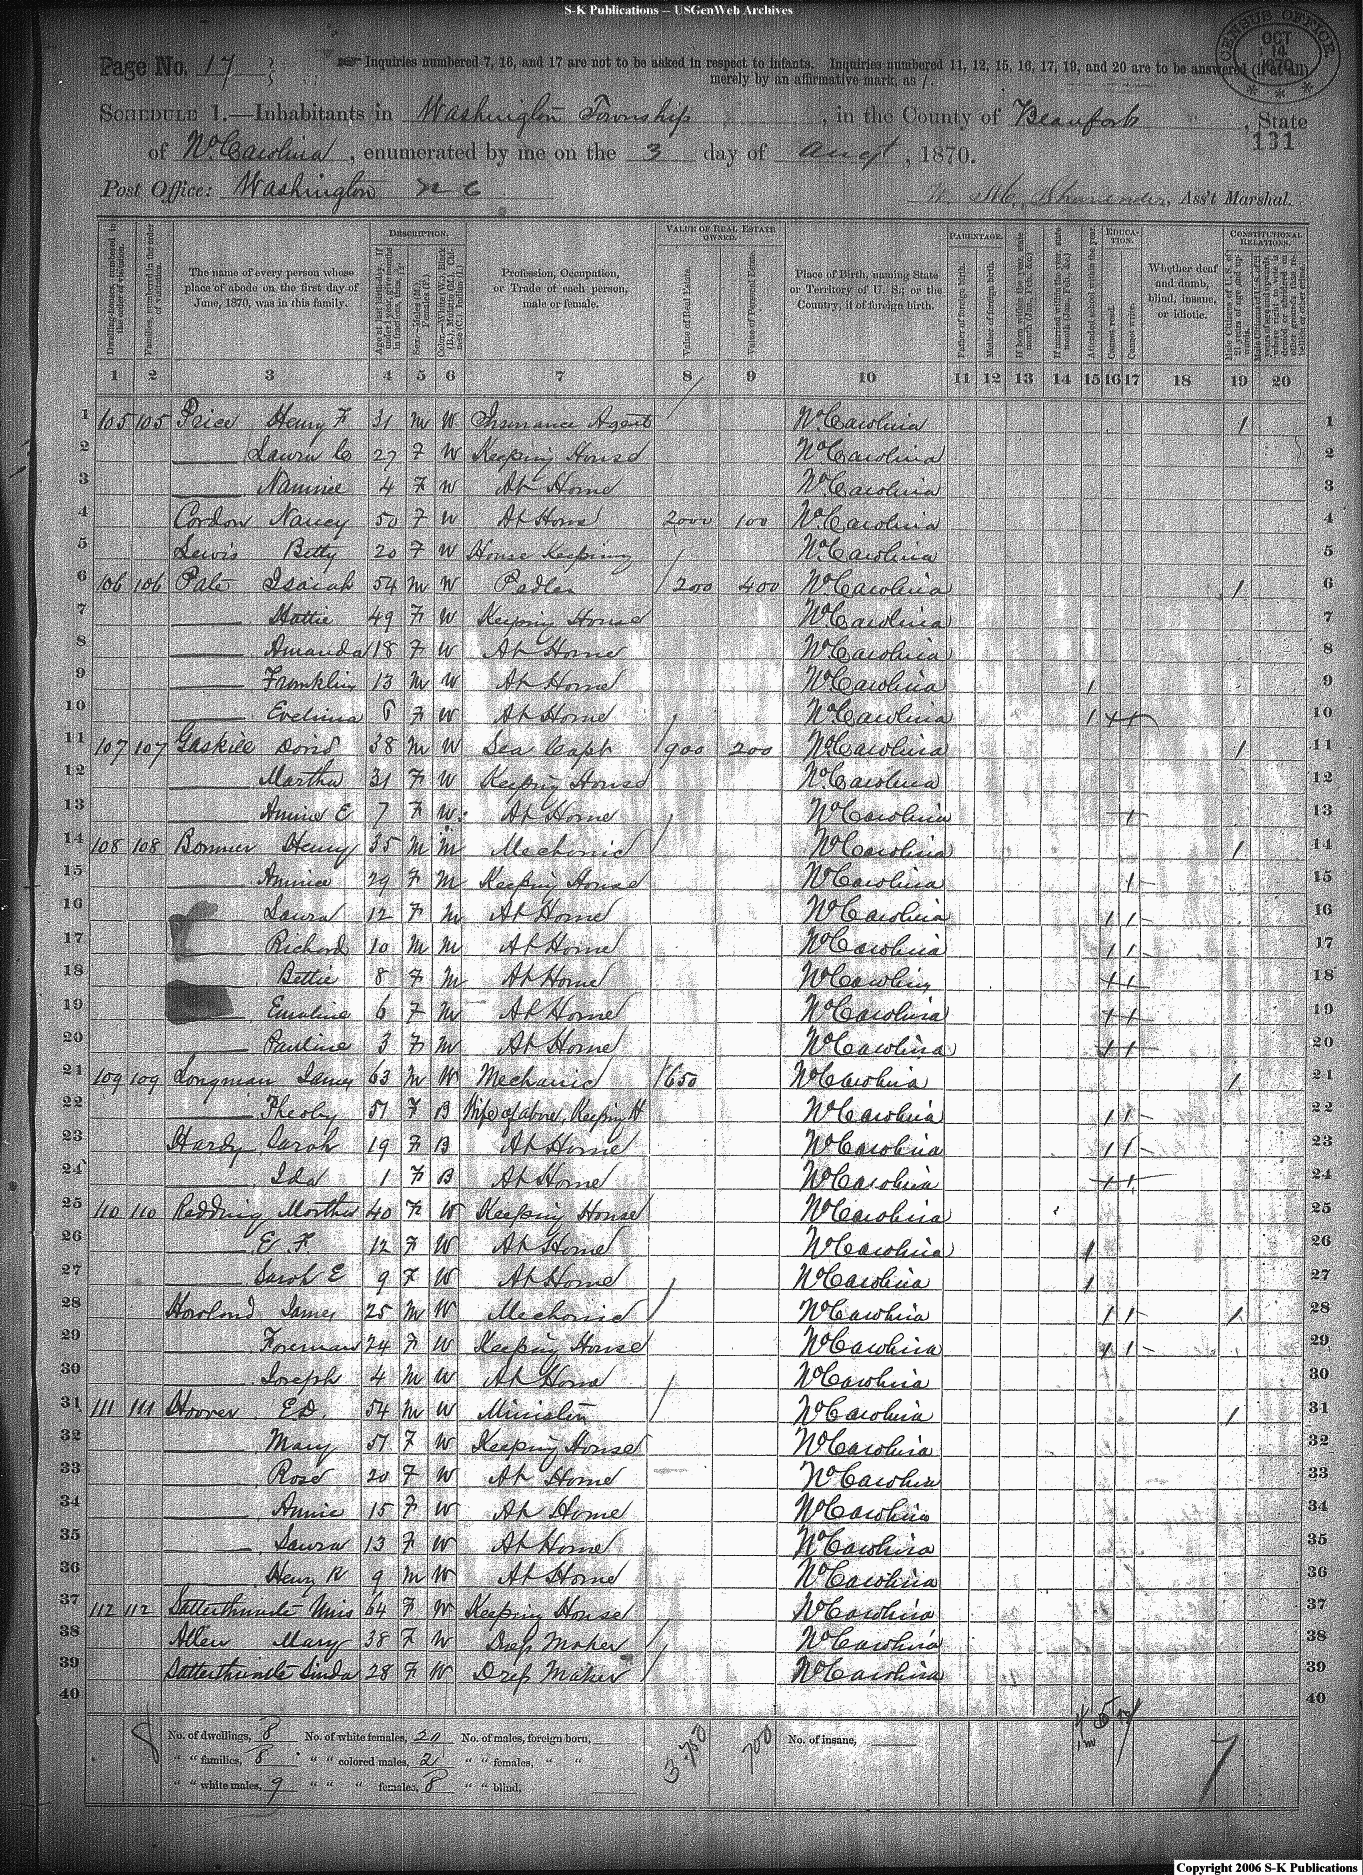 S-K Publications – USGenWeb Archives
CENSUS OFFICE OCT 14 1870
Page No. 17
Inquiries numbered 7, 16, and 17 are not to be asked in respect to infants. Inquiries numbered 11, 12, 15, 16, 17, 19, and 20 are to be answered (if at all)
merely by an affirmative mark, as /.
SCHEDULE 1.—Inhabitants in Washington Township, in the County of Beaufort, State
131
of No. Carolina, enumerated by me on the 3 day of Augt, 1870.
Post Office: Washington N C
W. Ass't Marshal.
DESCRIPTION. VALUE OF REAL ESTATE OWNED. PARENTAGE. EDUCATION. CONSTITUTIONAL RELATIONS.
Dwelling-houses, numbered in the order of visitation.
Families, numbered in the order of visitation.
The name of every person whose place of abode on the first day of June, 1870, was in this family.
Profession, Occupation, or Trade of each person, male or female.
Value of Real Estate.
Value of Personal Estate.
Place of Birth, naming State or Territory of U. S.; or the Country, if of foreign birth.
Father of foreign birth.
Mother of foreign birth.
Attended school within the year.
Cannot read.
Cannot write.
Whether deaf and dumb, blind, insane, or idiotic.
1 2 3 4 5 6 7 8 9 10 11 12 13 14 15 16 17 18 19 20
1 105 105 Price Henry F 31 M W Insurance Agent No. Carolina / 1
2 Laura C 27 F W Keeping House No. Carolina 2
3 Nannie 4 F W At Home No. Carolina 3
4 Cordon Nancy 50 F W At Home 2000 100 No. Carolina 4
5 Lewis Betty 20 F W House Keeping No. Carolina 5
6 106 106 Pate Isaiah 54 M W Pedler 200 400 No. Carolina / 6
7 Hattie 49 F W Keeping House No. Carolina 7
8 Amanda 18 F W At Home No. Carolina 8
9 Franklin 13 M W At Home No. Carolina / 9
10 Evelina F W At Home No. Carolina / / / 10
11 107 107 Gaskill 38 M W Sea Capt 900 200 No. Carolina / 11
12 Martha 31 F W Keeping House No. Carolina 12
13 Annie E 7 F W At Home No. Carolina / 13
14 108 108 Bonner Henry 35 M M Mechanic No. Carolina / 14
15 Annie 29 F M Keeping House No. Carolina / 15
16 Laura 12 F M At Home No. Carolina / / 16
17 Richard 10 M M At Home No. Carolina / / 17
18 Bettie 8 F M At Home No. Carolina / / 18
19 Emeline 6 F M At Home No. Carolina / / 19
20 Pauline 3 F M At Home No. Carolina / / 20
21 109 109 Longman James 63 M W Mechanic 650 No. Carolina / 21
22 51 F B Wife of above, Keeping H No. Carolina / / 22
23 Hardy Sarah 19 F B At Home No. Carolina / / 23
24 Ida 1 F B At Home No. Carolina / / 24
25 110 110 Redding Martha 40 F W Keeping House No. Carolina 25
26 E. F. 12 F W At Home No. Carolina / 26
27 Sarah E 9 F W At Home No. Carolina / 27
28 Howland James 25 M W Mechanic No. Carolina / / / 28
29 Foreman 24 F W Keeping House No. Carolina / / 29
30 Joseph 4 M W At Home No. Carolina 30
31 111 111 Hoover E D. 54 M W Minister No. Carolina / 31
32 Mary 51 F W Keeping House No. Carolina 32
33 Rose 20 F W At Home No. Carolina 33
34 Annie 15 F W At Home No. Carolina 34
35 Laura 13 F W At Home No. Carolina 35
36 Henry H 9 M W At Home No. Carolina 36
37 112 112 Satterthwaite Miss 64 F W Keeping House No. Carolina 37
38 Allen Mary 38 F W Dress Maker No. Carolina 38
39 Satterthwaite Linda 28 F W Dress Maker No. Carolina 39
40 40
8 No. of dwellings, 8 No. of white females, 20 No. of males, foreign born, 3750 700 No. of insane, 7
" " families, 8 " " colored males, 2 " " females, " "
" " white males, 9 " " " females, 8 " " blind,
Copyright 2006 S-K Publications